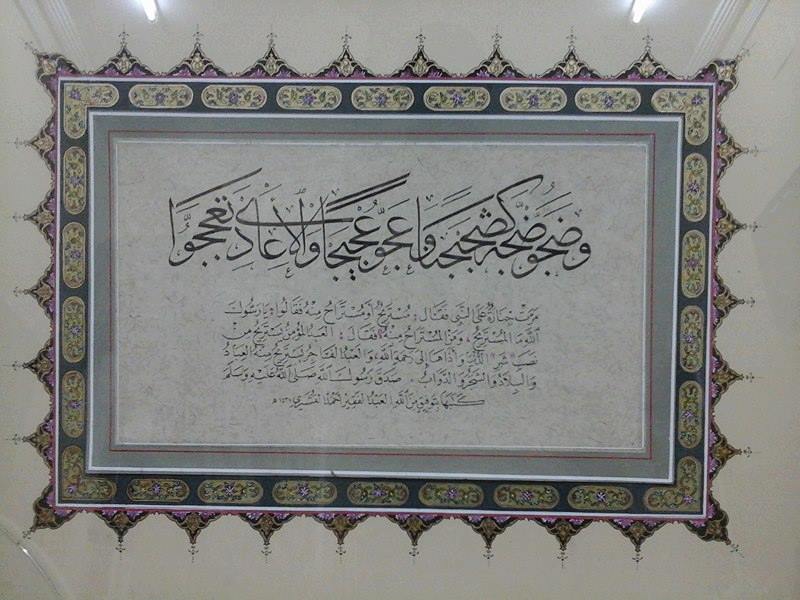 وضجو ضجة كضجيجنا وا عجو عجيجا والأعادي تعججوا
مرت جنازة على النبي فقال: مستريح أو مستراح منه فقالوا: يا رسول
الله ما المستريح، وما المستراح منه؟ فقال: العبد المؤمن يستريح من
نصب الدنيا وأذاها إلى رحمة الله، والعبد الفاجر يستريح منه العباد
والبلاد والشجر والدواب. صدق رسول الله صلى الله عليه وسلم
كتبها بتوفيق من الله العبد الفقير